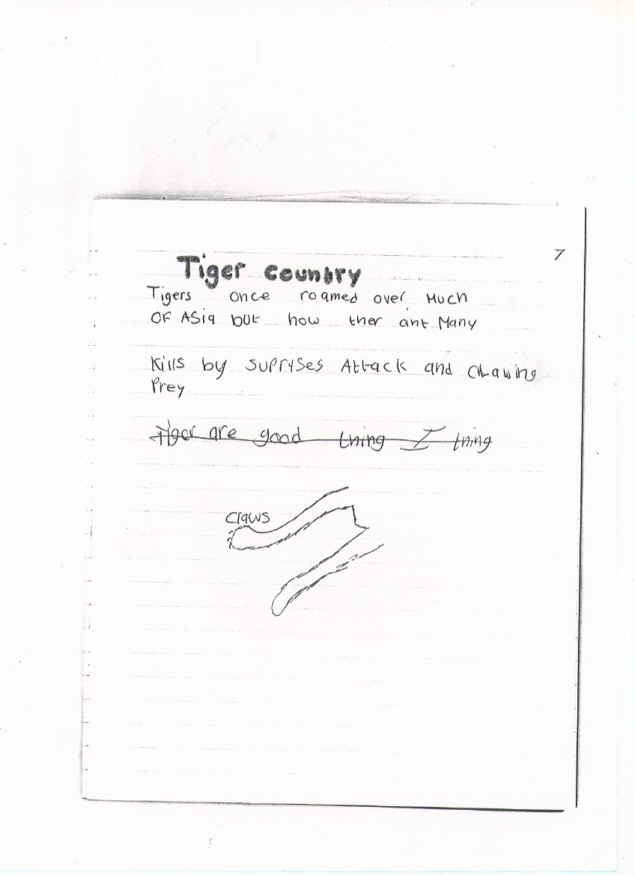 7
Tiger country
Tigers once roamed over Much
OF ASia but how ther ant Many
Kills by SupriSes Attack and Clawing
Prey
Tiger are good thing I thing
Claws